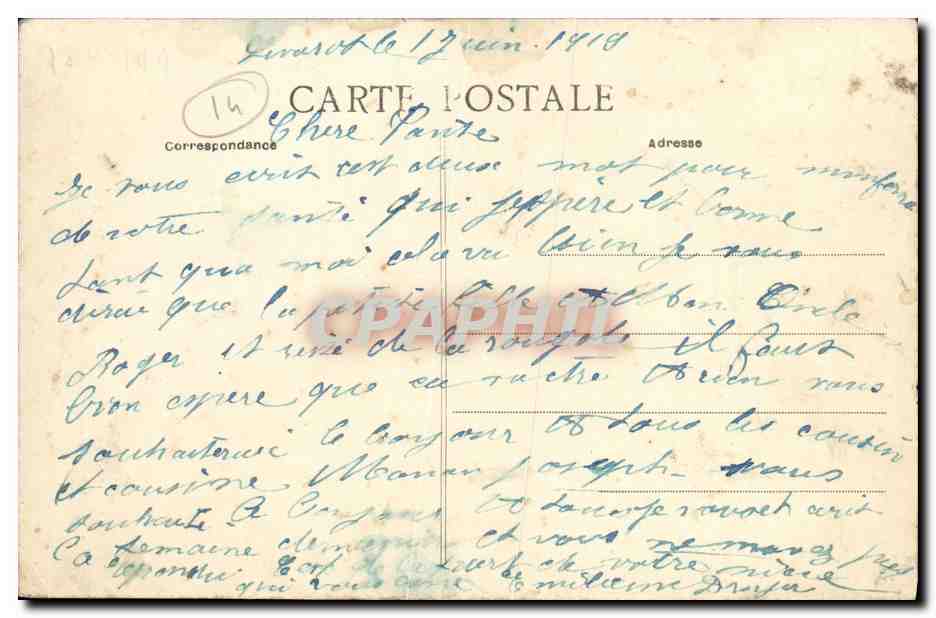 Livarot le 17 juin 1919
14
CARTE POSTALE
Chere Tante
Correspondance
Adresse
Je vous ecrit cest deux mot pour minforme
de votre santé qui jesppère est bonne
tant qua moi cela va bien Je vous
dirai que la petite fille et Mon Oncle
Roger et rené de la rougole il faut
bien espere que ca va etre rien vous
souhaiterai le bonjour A tous les cousin
et cousine Maman joseph vous
souhaite le bonjour javoit ecrit
la semaine dernier et vous ne mavez pas
repondu de votre niece
qui vous aime Emilienne
CPAPHIL